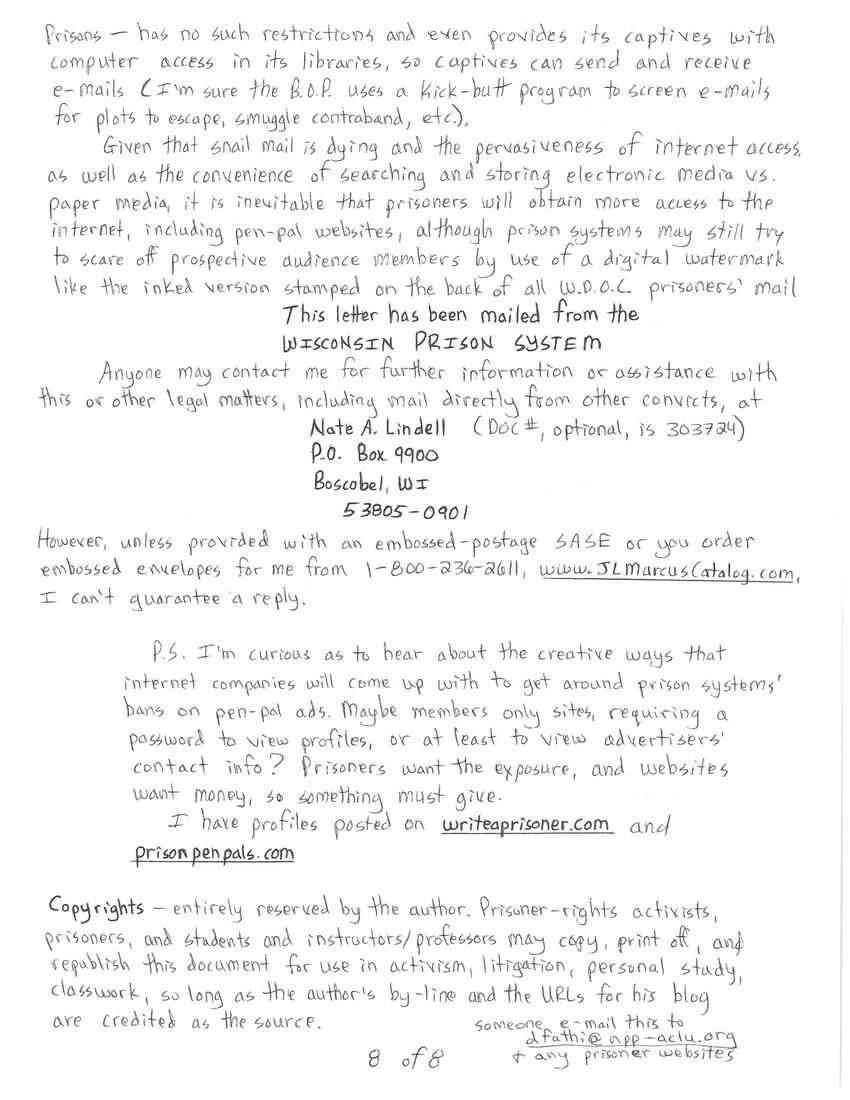 Prisons – has no such restrictions and even provides its captives with
computer access in its libraries, so captives can send and receive
e-mails (I'm sure the B.O.P. uses a kick-butt program to screen e-mails
for plots to escape, smuggle contraband, etc.).
Given that snail mail is dying and the pervasiveness of internet access,
as well as the convenience of searching and storing electronic media vs.
paper media, it is inevitable that prisoners will obtain more access to the
internet, including pen-pal websites, although prison systems may still try
to scare off prospective audience members by use of a digital watermark
like the inked version stamped on the back of all W.D.O.C. prisoners' mail
This letter has been mailed from the
WISCONSIN PRISON SYSTEM
Anyone may contact me for further information or assistance with
this or other legal matters, including mail directly from other convicts, at
Nate A. Lindell (Doc #, optional, is 303724)
P.O. Box 9900
Boscobel, WI
53805-0901
However, unless provided with an embossed-postage SASE or you order
embossed envelopes for me from 1-800-236-2611, www.JLMarcusCatalog.com,
I can't guarantee a reply.
P.S. I'm curious as to hear about the creative ways that
internet companies will come up with to get around prison systems'
bans on pen-pal ads. Maybe members only sites, requiring a
password to view profiles, or at least to view advertisers'
contact info? Prisoners want the exposure, and websites
want money, so something must give.
I have profiles posted on writeaprisoner.com and
prisonpenpals.com
Copyrights – entirely reserved by the author. Prisoner-rights activists,
prisoners, and students and instructors/professors may copy, print off, and
republish this document for use in activism, litigation, personal study,
classwork, so long as the author's by-line and the URLs for his blog
are credited as the source.
someone e-mail this to
dfathi@npp-aclu.org
+ any prisoner websites
8 of 8